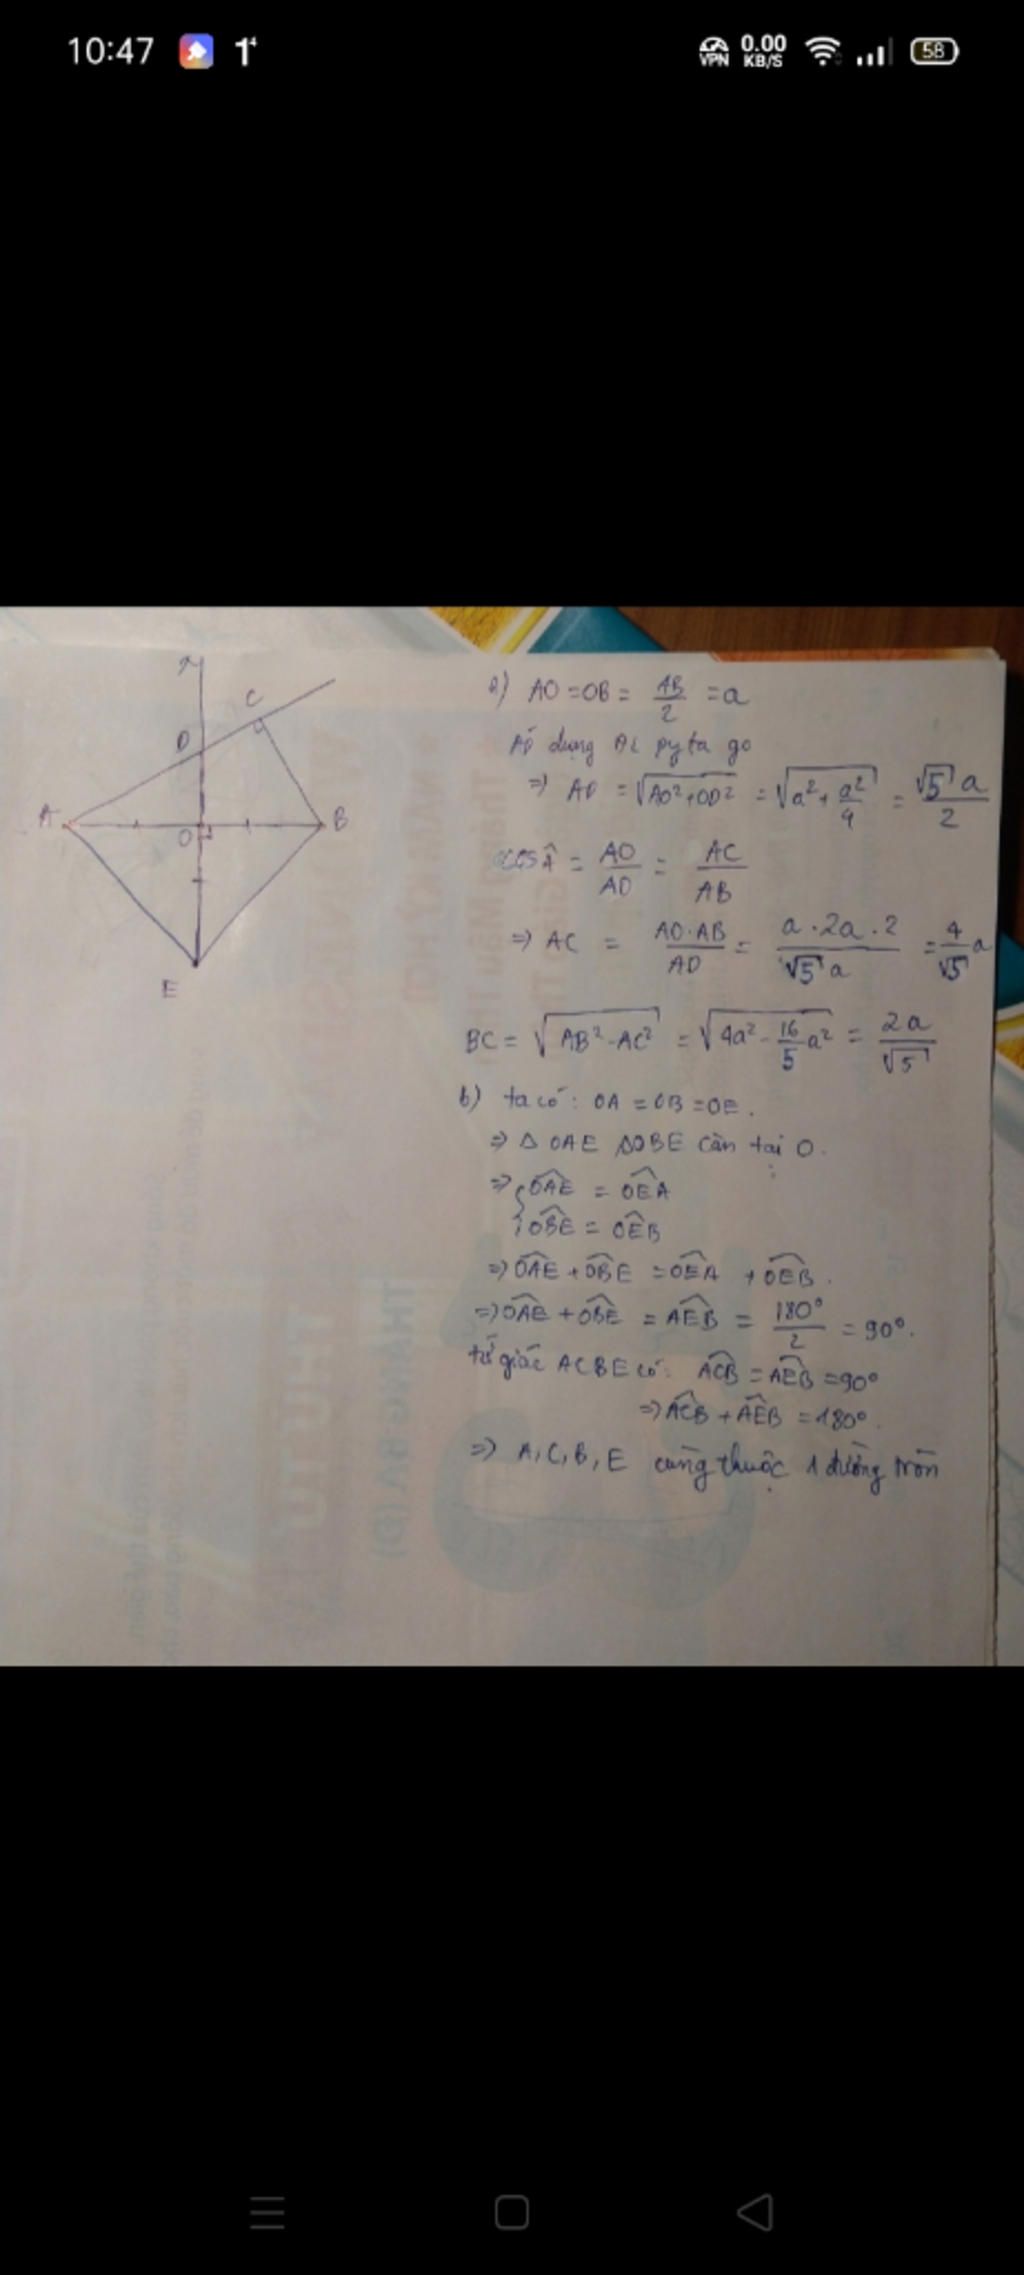 10:47
1
VPN
0.00
KB/S
58
x
C
D
A
O
B
E
a) AO = OB = AB/2 = a
Áp dụng ĐL pytago
=> AD = √(AO² + OD²) = √(a² + a²/4) = √5 a/2
cos  = AO/AD = AC/AB
=> AC = AO.AB/AD = a.2a.2/√5 a = 4/√5 a
BC = √(AB² - AC²) = √(4a² - 16/5 a²) = 2a/√5
b) ta có: OA = OB = OE.
=> Δ OAE ΔOBE cân tại O.
=> { OAE = OEA
OBE = OEB
=> OAE + OBE = OEA + OEB.
=> OAE + OBE = AEB = 180°/2 = 90°.
tứ giác ACBE có: ACB = AEB = 90°
=> ACB + AEB = 180°.
=> A, C, B, E cùng thuộc 1 đường tròn